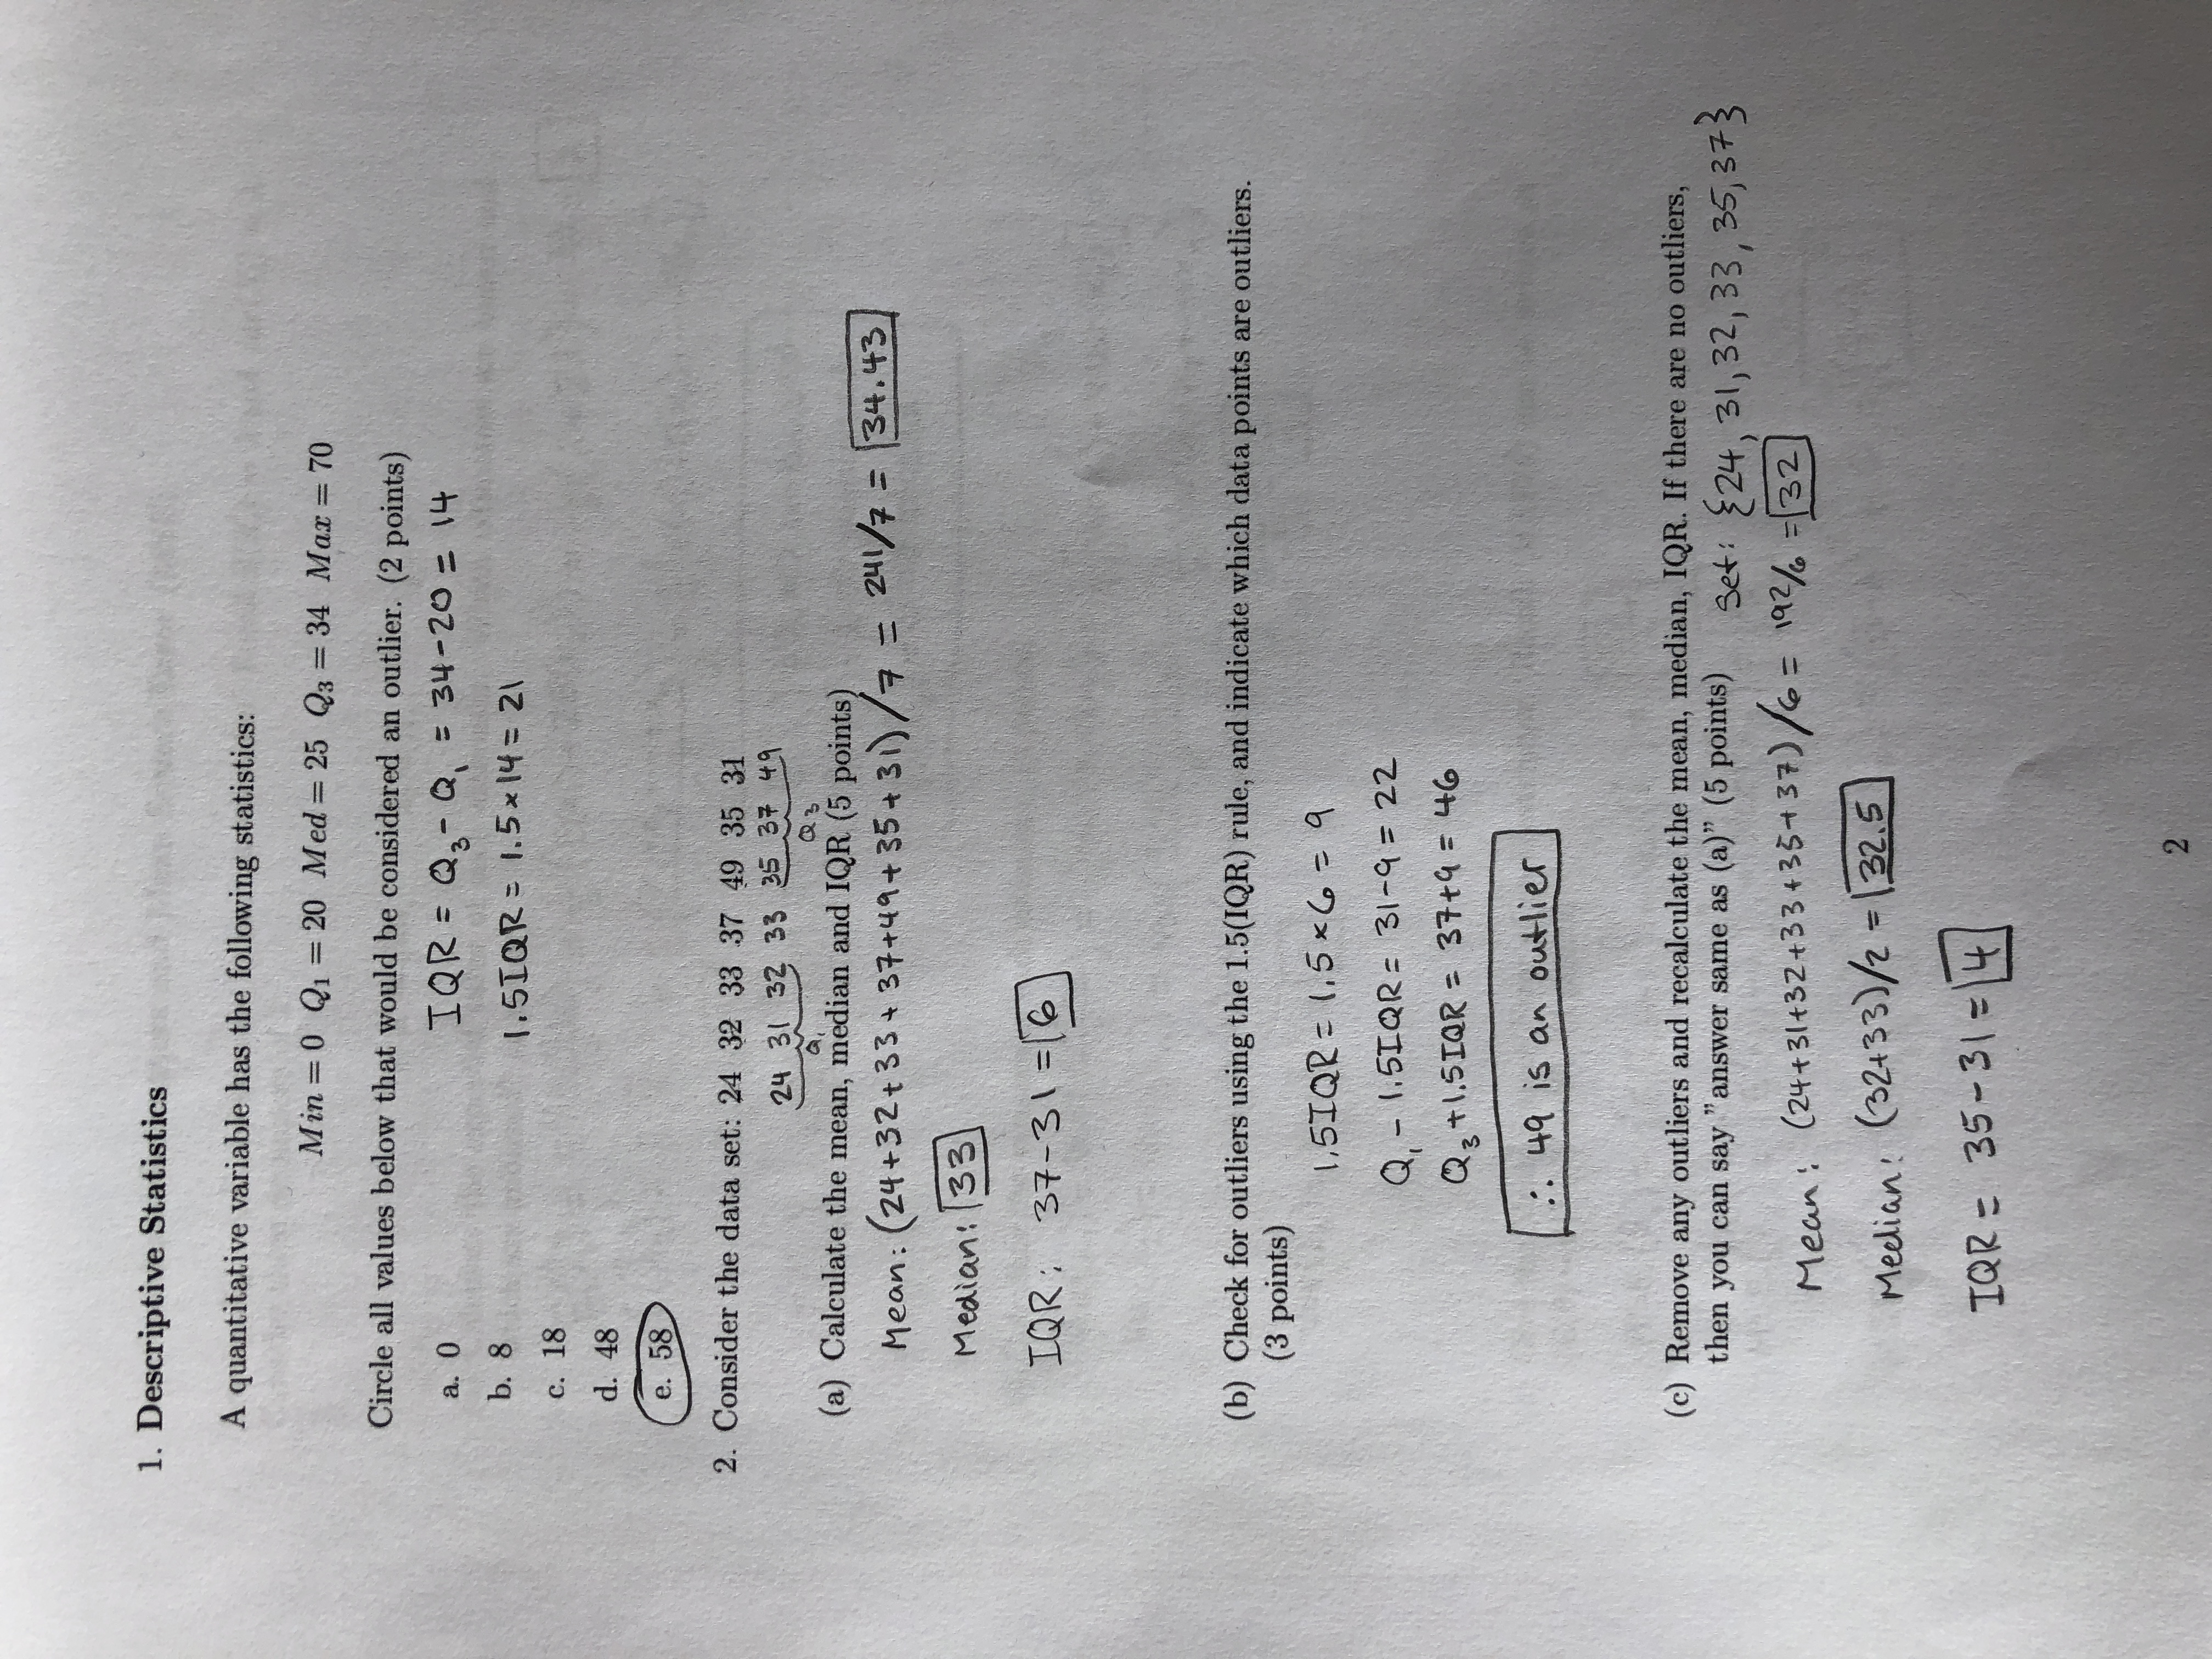 1. Descriptive Statistics
A quantitative variable has the following statistics:
Min = 0 Q₁ = 20 Med = 25 Q₃ = 34 Max = 70
Circle all values below that would be considered an outlier. (2 points)
a. 0
IQR = Q₃ - Q₁ = 34-20 = 14
b. 8
1.5IQR = 1.5×14 = 21
c. 18
d. 48
e. 58
2. Consider the data set: 24 32 33 37 49 35 31
24 31 32 33 35 37 49
Q₁ Q₃
(a) Calculate the mean, median and IQR (5 points)
Mean: (24+32+33+37+49+35+31)/7 = 241/7 = 34.43
Median: 33
IQR: 37-31 = 6
(b) Check for outliers using the 1.5(IQR) rule, and indicate which data points are outliers.
(3 points)
1.5IQR = 1.5×6 = 9
Q₁ - 1.5IQR = 31-9 = 22
Q₃ +1.5IQR = 37+9 = 46
∴ 49 is an outlier
(c) Remove any outliers and recalculate the mean, median, IQR. If there are no outliers,
then you can say ”answer same as (a)” (5 points) Set: {24, 31, 32, 33, 35, 37}
Mean: (24+31+32+33+35+37)/6 = 192/6 = 32
Median: (32+33)/2 = 32.5
IQR = 35-31 = 4
2